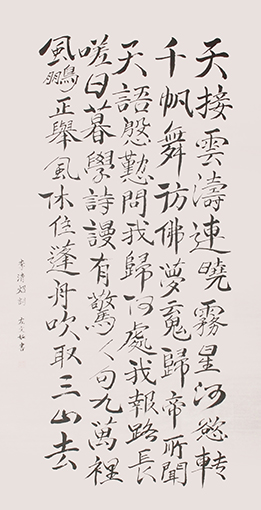 天接雲濤連曉霧星河慾轉
千帆舞彷佛夢魂歸帝所聞
天語慇懃問我歸何處我報路長
嗟日暮學詩謾有驚人句九萬裡
風鵬正舉風休住蓬舟吹取三山去
李清照詞 書